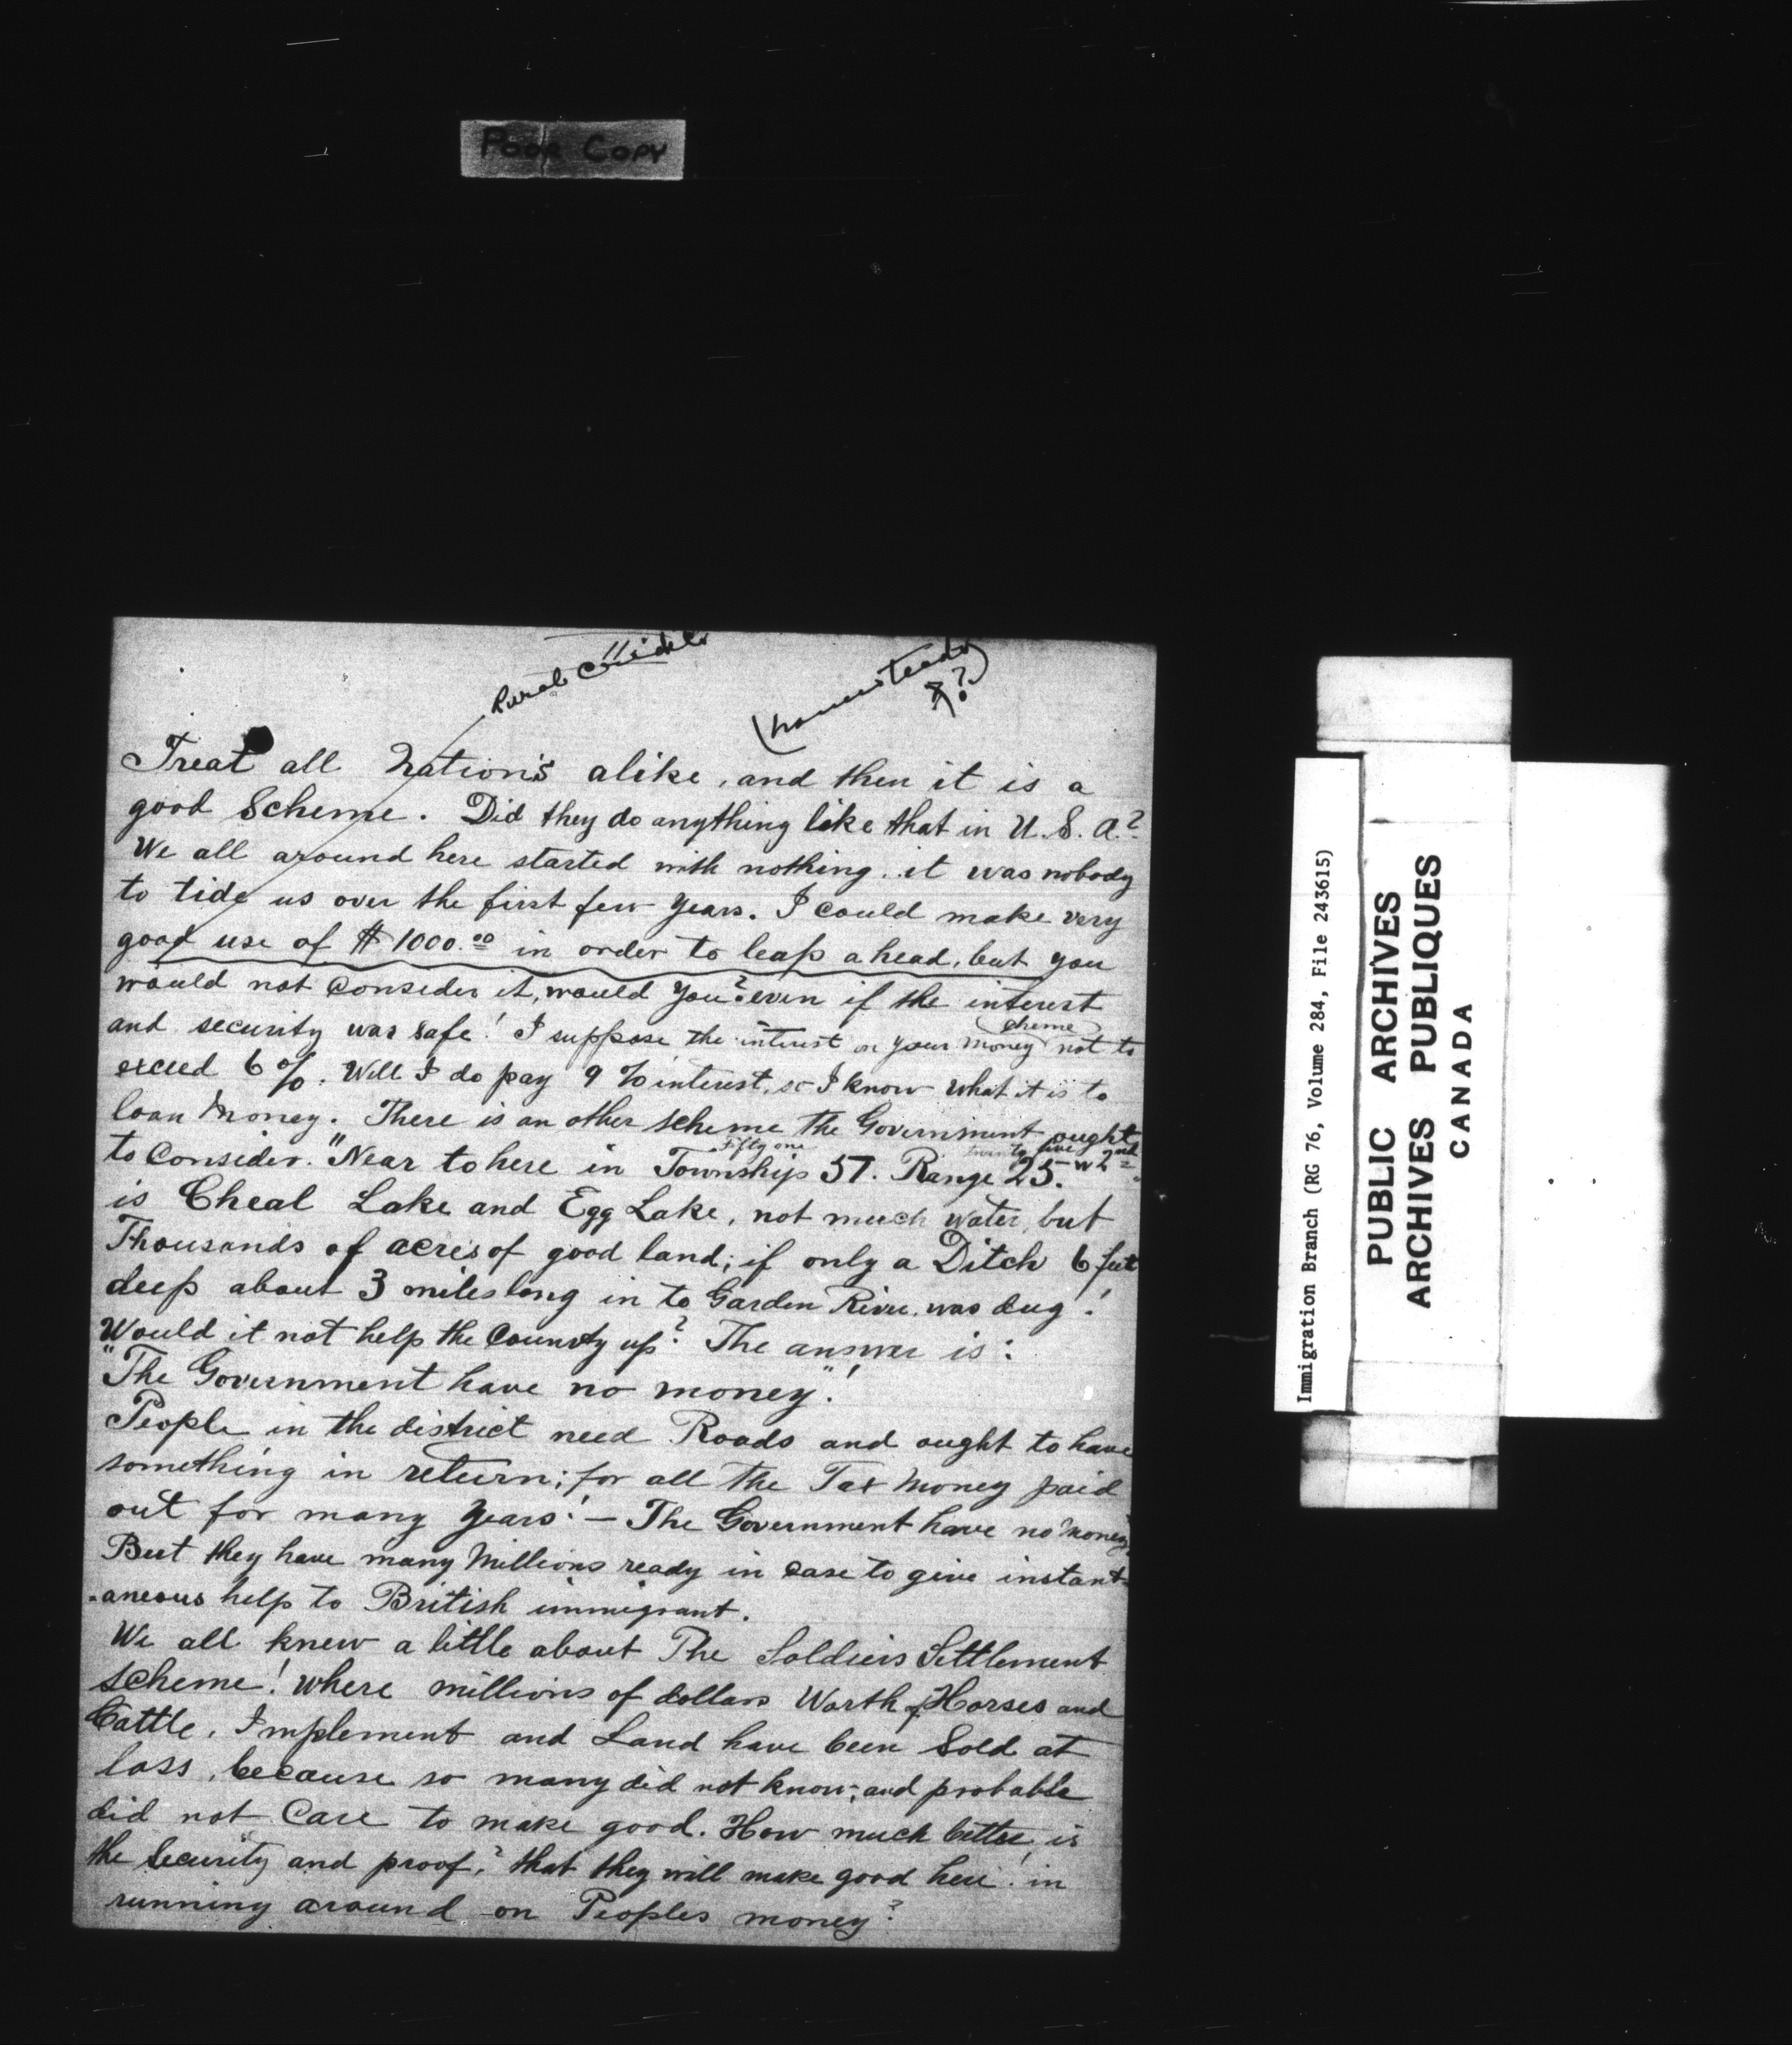 Poor Copy
Rural Credits
(homesteads
?)
Treat all Nation's alike, and then it is a
good Scheme. Did they do anything like that in U.S.A.?
We all around here started with nothing. it was nobody
to tide us over the first few years. I could make very
good use of $1000.00 in order to leap ahead, but you
would not Consider it, would you? even if the interest
and security was safe! I suppose the interest on your money scheme not to
exceed 6%. Well I do pay 9% interest, so I know what it is to
loan money. There is an other scheme the Government ought
to Consider. "Near to here in Township 51. fifty one Range 25. twenty five W 2nd
is Cheal Lake and Egg Lake, not much water, but
Thousands of acres of good land; if only a Ditch 6 feet
deep about 3 miles long in to Garden River was dug!
Would it not help the Country up? The answer is:
"The Government have no money"!
People in the district need Roads and ought to have
something in return; for all the Tax Money paid
out for many years! — The Government have no money
But they have many Millions ready in case to give instant-
-aneous help to British immigrant.
We all knew a little about The Soldiers Settlement
Scheme! where millions of dollars Worth of Horses and
Cattle, Implement and Land have been Sold at
loss, because so many did not know; and probable
did not Care to make good. How much better is
the Security and proof? that they will make good here! in
running around on Peoples money?
Immigration Branch (RG 76, Volume 284, File 243615)
PUBLIC ARCHIVES
ARCHIVES PUBLIQUES
CANADA